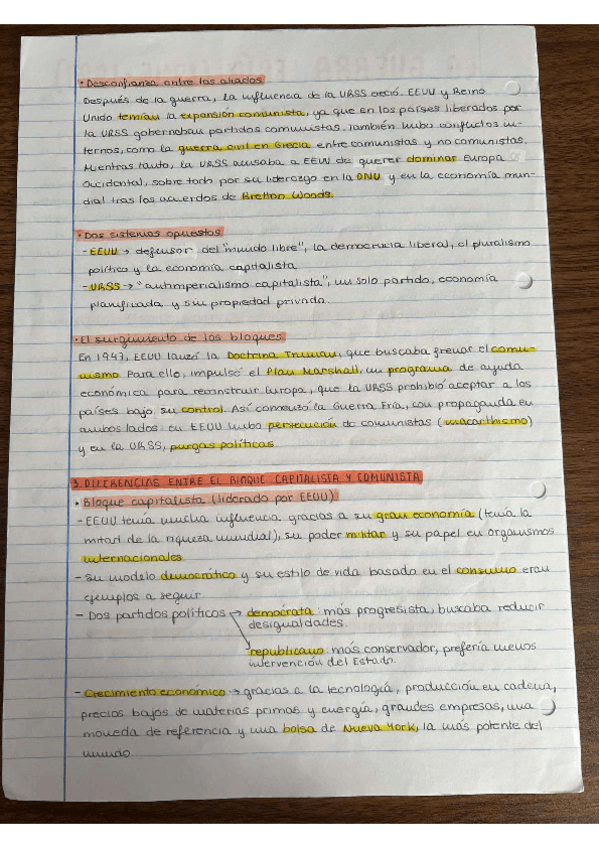 • Desconfianza entre los aliados
Después de la guerra, la influencia de la URSS creció. EEUU y Reino
Unido temían la expansión comunista, ya que en los países liberados por
la URSS gobernaban partidos comunistas. También hubo conflictos in-
ternos, como la guerra civil en Grecia entre comunistas y no comunistas.
Mientras tanto, la URSS acusaba a EEUU de querer dominar Europa
Occidental, sobre todo por su liderazgo en la ONU y en la economía mun-
dial tras los acuerdos de Bretton Woods.
• Dos sistemas opuestos
- EEUU → defensor del "mundo libre", la democracia liberal, el pluralismo
político y la economía capitalista
- URSS → "antimperialismo capitalista", un solo partido, economía
planificada y sin propiedad privada.
• El surgimiento de los bloques
En 1947, EEUU lanzó la Doctrina Truman, que buscaba frenar el comu-
nismo. Para ello, impulsó el Plan Marshall, un programa de ayuda
económica para reconstruir Europa, que la URSS prohibió aceptar a los
países bajo su control. Así comenzó la Guerra Fría, con propaganda en
ambos lados: en EEUU hubo persecución de comunistas (macarthismo)
y en la URSS, purgas políticas.
3. DIFERENCIAS ENTRE EL BLOQUE CAPITALISTA Y COMUNISTA
• Bloque capitalista (liderado por EEUU)
- EEUU tenía mucha influencia gracias a su gran economía (tenía la
mitad de la riqueza mundial), su poder militar y su papel en organismos
internacionales
- Su modelo democrático y su estilo de vida basado en el consumo eran
ejemplos a seguir
- Dos partidos políticos → demócrata: más progresista, buscaba reducir
desigualdades.
republicano: más conservador, prefería menos
intervención del Estado.
- Crecimiento económico → gracias a la tecnología, producción en cadena,
precios bajos de materias primas y energía, grandes empresas, una
moneda de referencia y una bolsa de Nueva York, la más potente del
mundo.